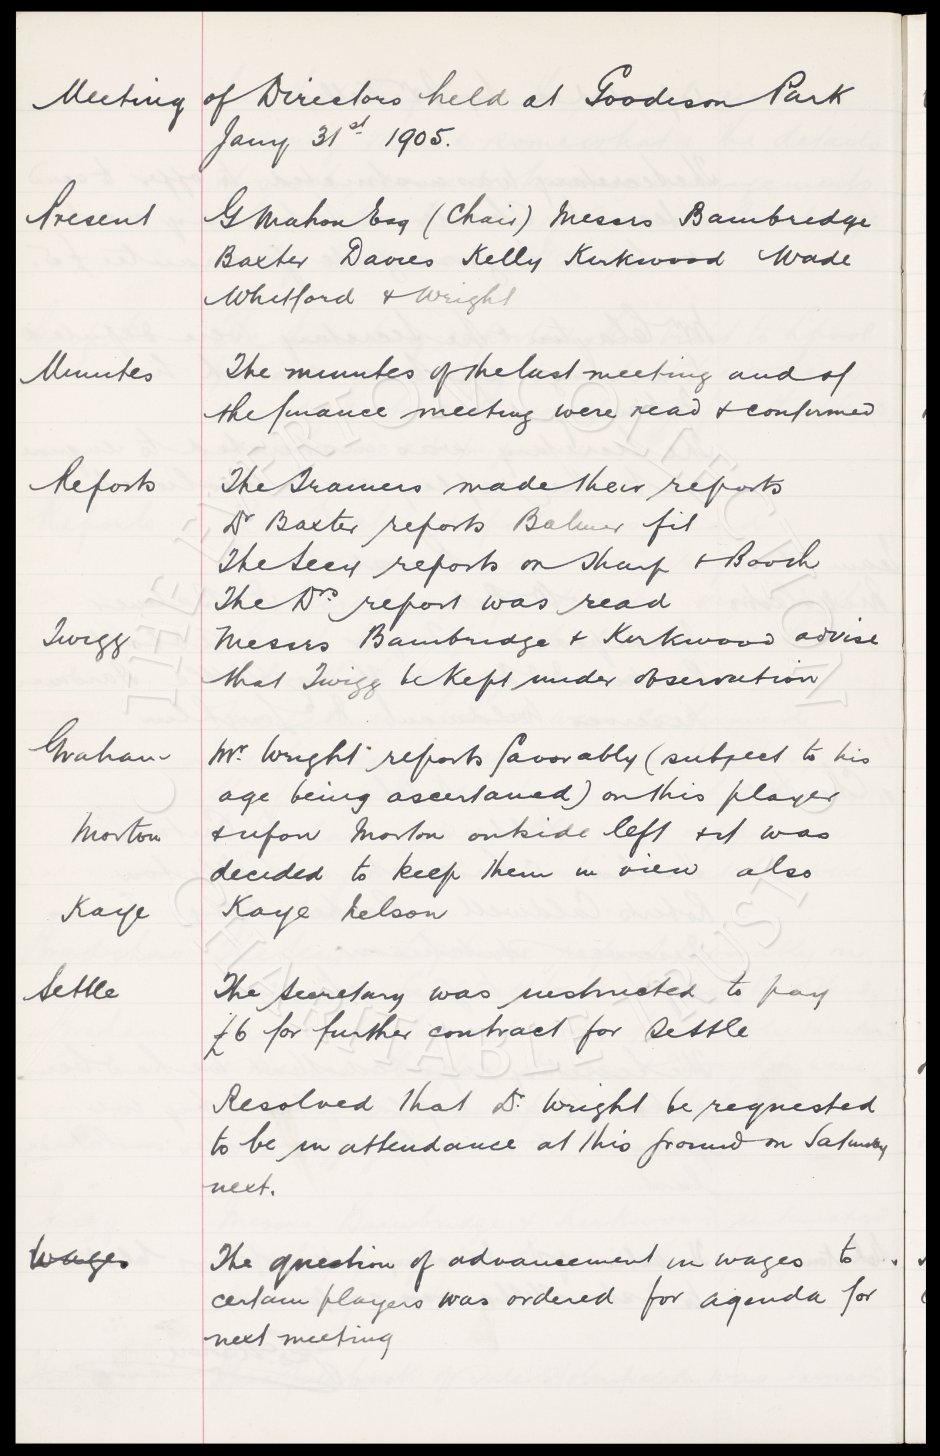 Meeting of Directors held at Goodison Park
Jany 31st 1905.
Present G Mahon Esq (Chair) Messrs Bambridge
Baxter Davies Kelly Kirkwood Wade
Whitford & Wright
Minutes The minutes of the last meeting and of
the finance meeting were read & confirmed
Reports The Trainers made their reports
Dr Baxter reports Balmer fit
The Secy reports on Sharp & Booth
The Drs report was read
Twigg Messrs Bambridge & Kirkwood advise
that Twigg be kept under observation
Graham Mr. Wright reports favorably (subject to his
age being ascertained) on this player
Morton & upon Morton outside left & it was
decided to keep them in view also
Kaye Kaye Nelson
Settle The Secretary was instructed to pay
£6 for further contract for Settle
Resolved that Dr. Wright be requested
to be in attendance at this ground on Saturday
next.
Wages The question of advancement in wages to
certain players was ordered for agenda for
next meeting
THE EVERTON COLLECTION
CHARITABLE TRUST